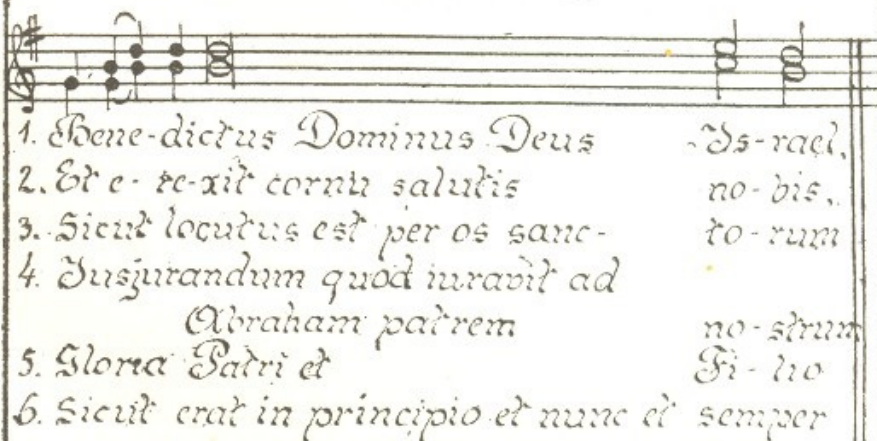 1. Bene-dictus Dominus Deus Is-rael.
2. Et e-re-xit cornu salutis no-bis.
3. Sicut locutus est per os sanc-to-rum
4. Jusjurandum quod iuravit ad
Abraham patrem no-strum
5. Gloria Patri et Fi-lio
6. Sicut erat in principio et nunc et semper